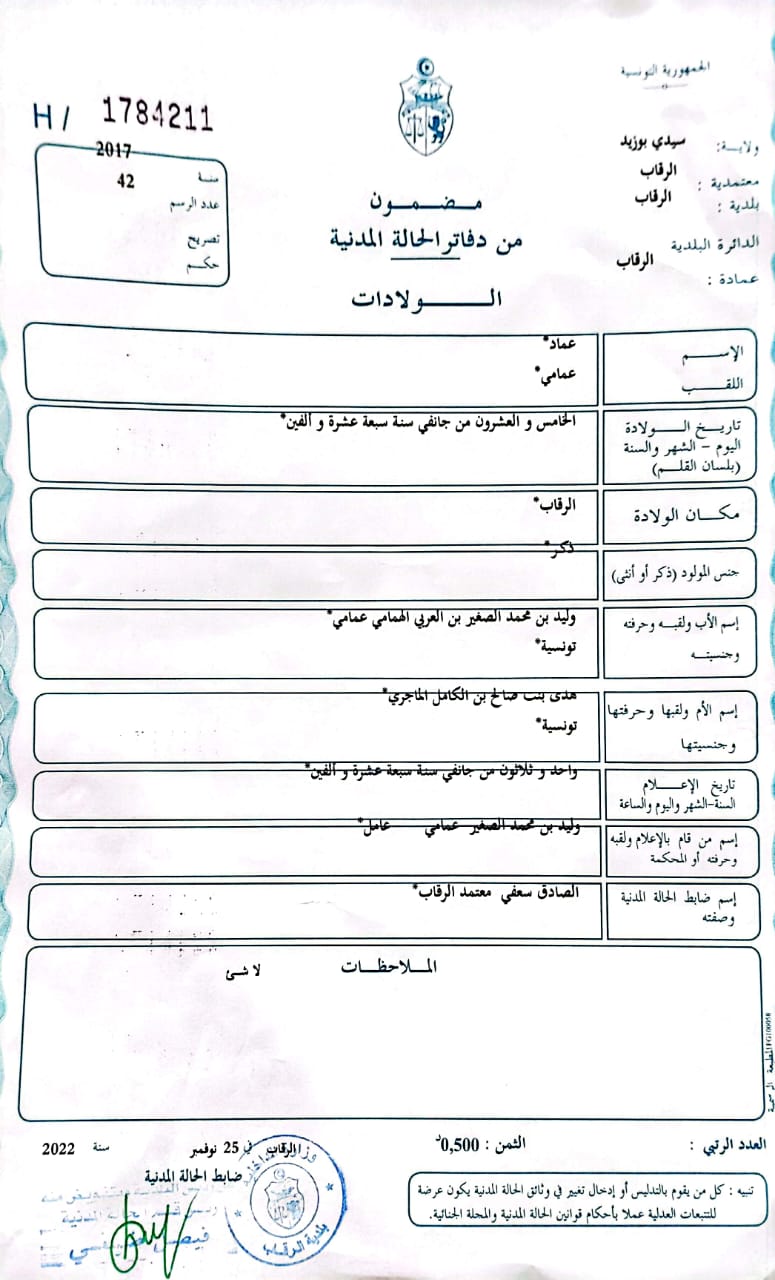 الجمهورية التونسية
H / 1784211
ولاية: سيدي بوزيد
معتمدية : الرقاب
بلدية : الرقاب
الدائرة البلدية
عمادة : الرقاب
سنة 2017
عدد الرسم 42
تصريح
حكم
مضمون
من دفاتر الحالة المدنية
الولادات
الإسم عماد*
اللقب عمامي*
تاريخ الولادة
اليوم - الشهر والسنة
(بلسان القلم)
الخامس و العشرون من جانفي سنة سبعة عشرة و ألفين*
مكان الولادة الرقاب*
جنس المولود (ذكر أو أنثى) ذكر*
إسم الأب ولقبه وحرفته
وجنسيته
وليد بن محمد الصغير بن العربي الهمامي عمامي*
تونسية*
إسم الأم ولقبها وحرفتها
وجنسيتها
هدى بنت صالح بن الكامل الماجري*
تونسية*
تاريخ الإعلام
السنة-الشهر واليوم والساعة
واحد و ثلاثون من جانفي سنة سبعة عشرة و ألفين*
إسم من قام بالإعلام ولقبه
وحرفته أو المحكمة
وليد بن محمد الصغير عمامي عامل*
إسم ضابط الحالة المدنية
وصفته
الصادق سعفي معتمد الرقاب*
الملاحظات
لا شئ
العدد الرتبي :
الثمن : 0,500د
الرقاب في 25 نوفمبر سنة 2022
ضابط الحالة المدنية
تنبيه : كل من يقوم بالتدليس أو إدخال تغيير في وثائق الحالة المدنية يكون عرضة
للتتبعات العدلية عملا بأحكام قوانين الحالة المدنية والمجلة الجنائية.
وزارة الداخلية
بلدية الرقاب